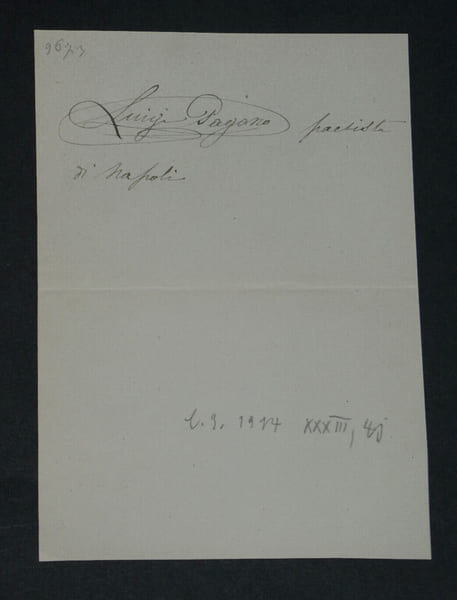 9673
Luigi Pagano
di Napoli
1914 XXXIII, 45